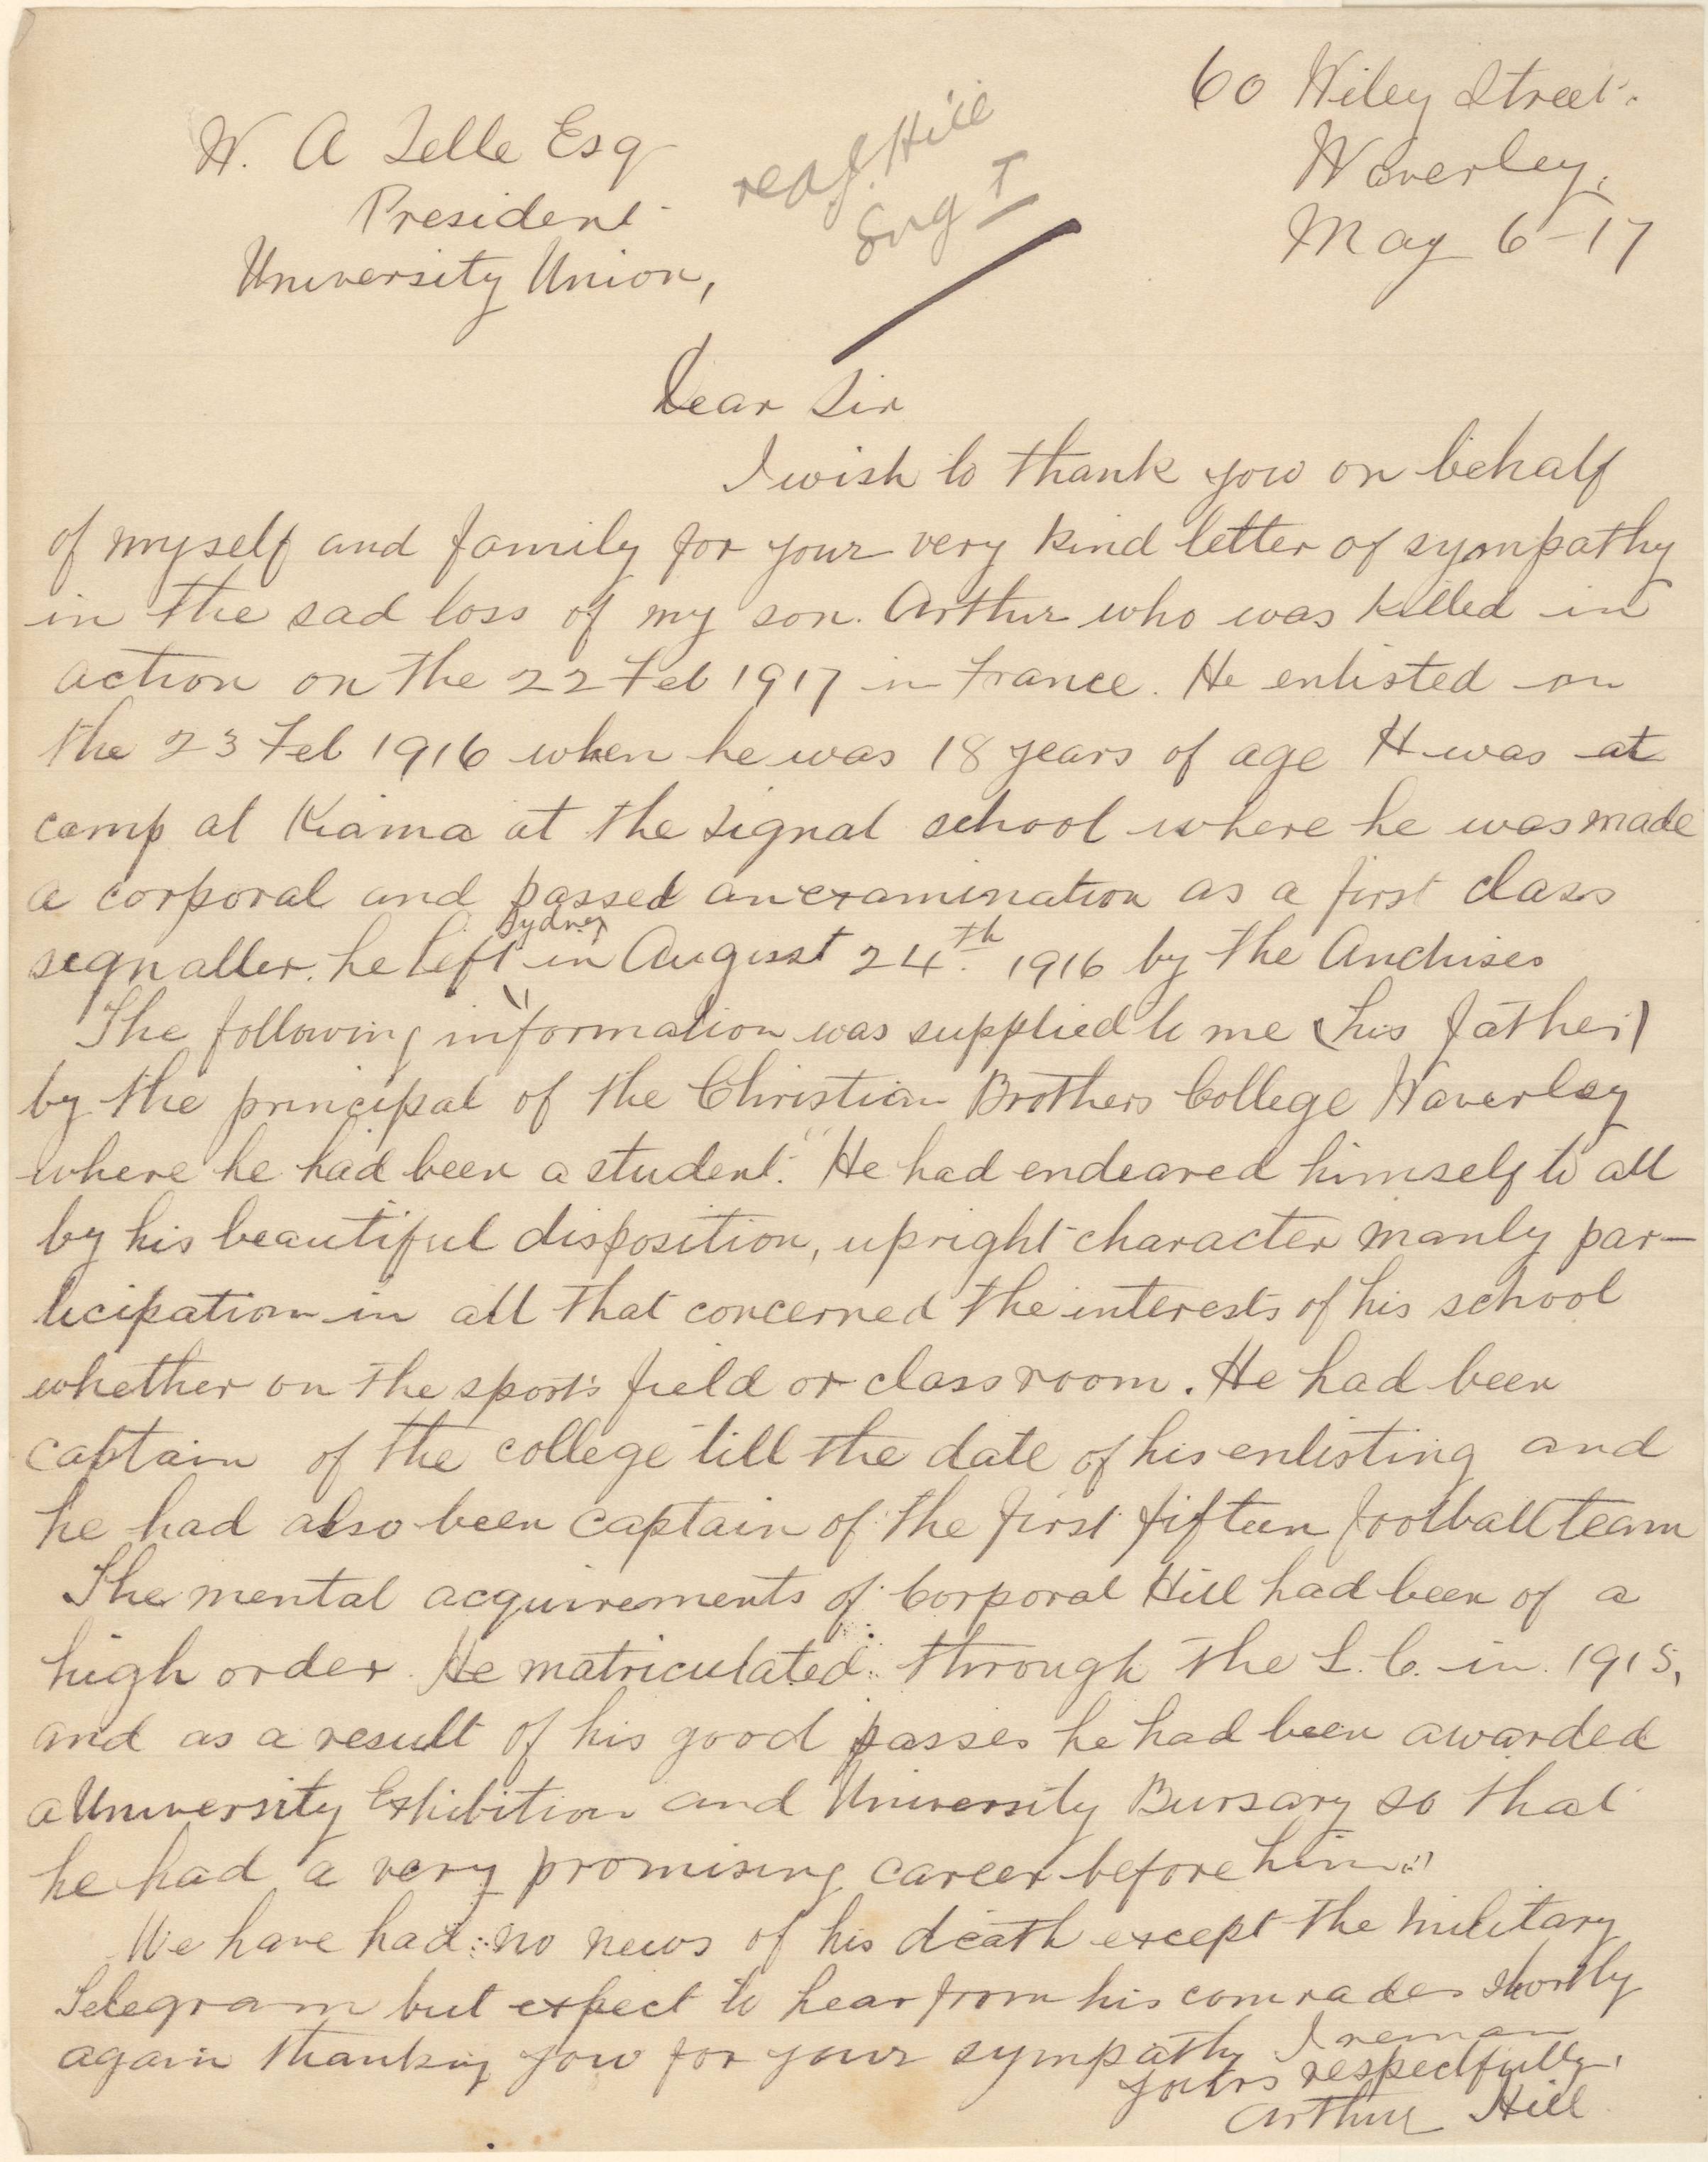 60 Wiley Street.
Waverley,
May 6-17
W. A Selle Esq
President
University Union,
Hill
Eng I
Dear Sir
I wish to thank you on behalf
of myself and family for your very kind letter of sympathy
in the sad loss of my son. Arthur who was killed in
action on the 22 Feb 1917 in France. He enlisted on
the 23 Feb 1916 when he was 18 years of age H was at
camp at Kiama at the signal school where he was made
a corporal and passed an examination as a first class
signaller. he left Sydney in August 24th. 1916 by the Anchises
The following information was supplied to me (his father)
by the principal of the Christian Brothers College Waverley
where he had been a student. "He had endeared himself to all
by his beautiful disposition, upright character manly par-
ticipation in all that concerned the interests of his school
whether on the sports field or class room. He had been
captain of the college till the date of his enlisting and
he had also been captain of the first fifteen football team
The mental acquirements of Corporal Hill had been of a
high order. He matriculated through the L. C. in 1915,
and as a result of his good passes he had been awarded
a University Exhibition and University Bursary so that
he had a very promising career before him."
We have had no news of his death except the military
telegram but expect to hear from his comrades shortly
again thanking you for your sympathy I remain
yours respectfully,
Arthur Hill